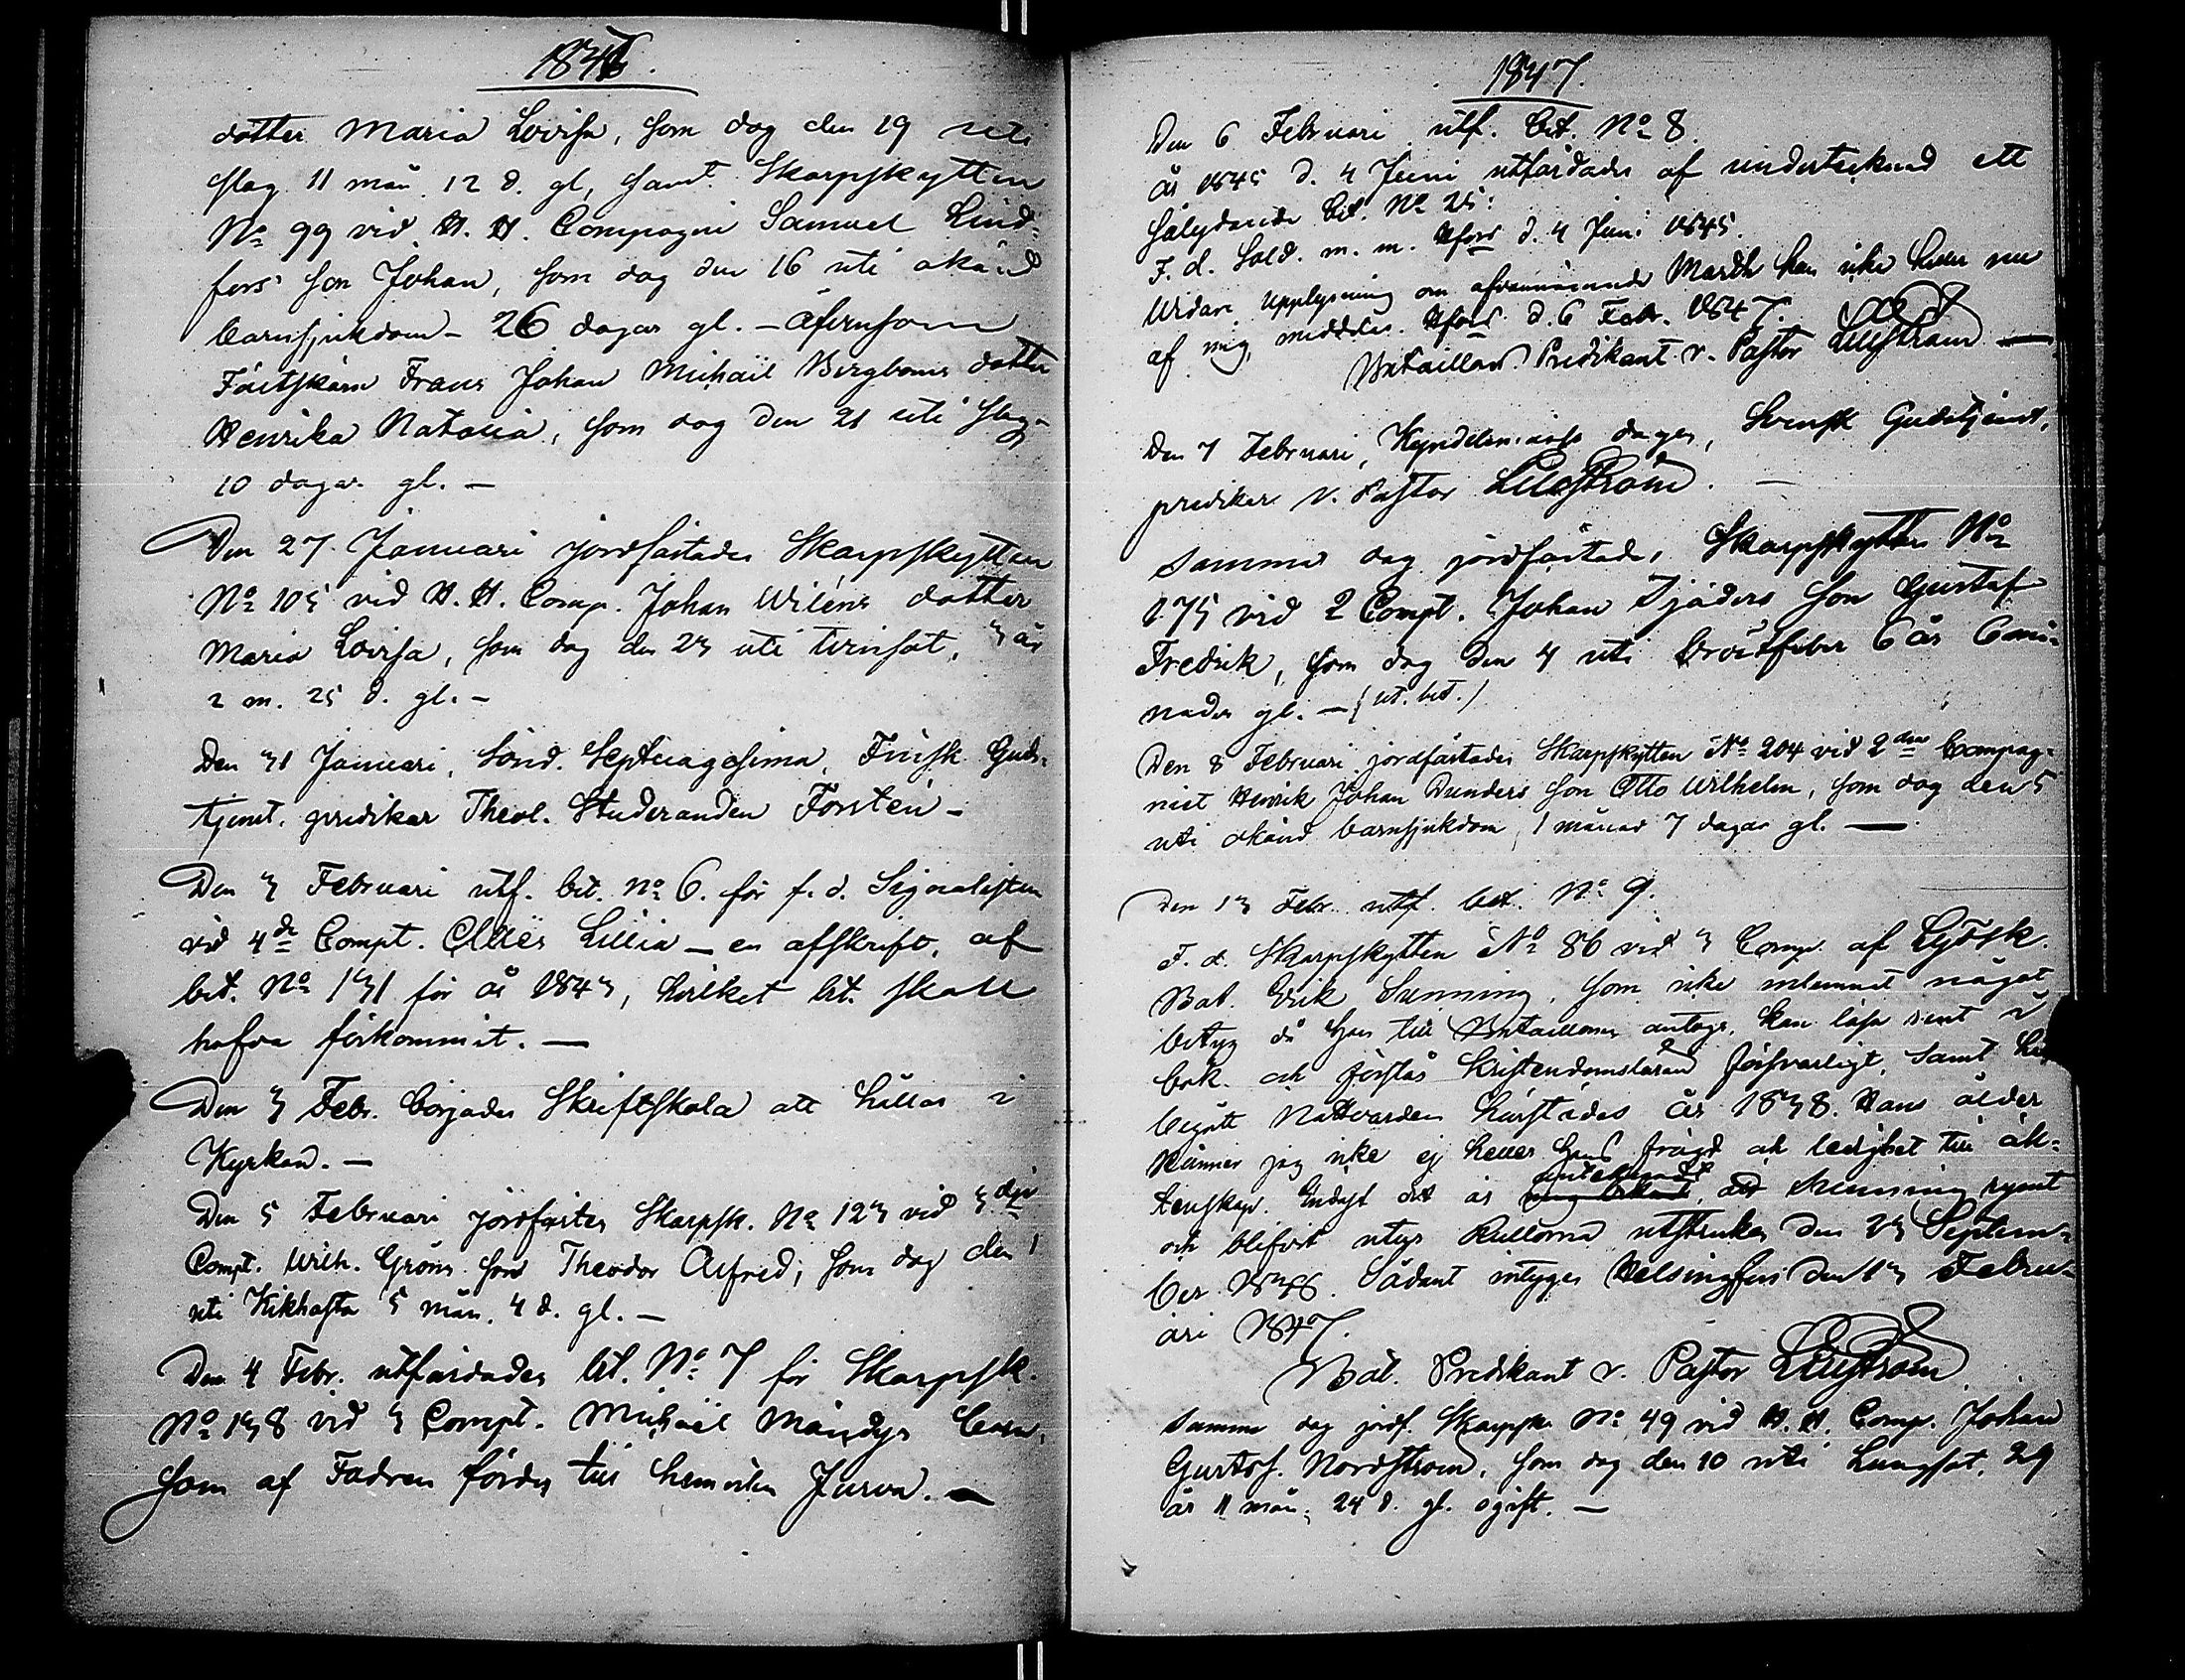 1847.
dotter Maria Lovisa, som dog den 19 uti
slag 11 mån. 12 d. gl, samt Skarpskytten
No 99 vid H. H. Compagni Samuel Lind-
fors' son Johan, som dog den 16 uti okänd
barnsjukdom – 26 dagar gl. – äfvensom
Fältskärn Frans Johan Michaël Bergboms dotter
Henrika Natalia, som dog den 21 uti slag
10 dagar gl. –
Den 27. Januari jordfästades Skarpskytten
No 105 vid H. H. Comp. Johan Wiléns dotter
Maria Lovisa, som dog den 23 uti tvinsot, 3 år
2 m. 25 d. gl. –
Den 31 Januari, Sönd. Septuagesima, Finsk Guds-
tjenst. predikar Theol. Studeranden Forstén –
Den 3 Februari utf. bet. No 6. för f. d. Signalisten
vid 4de Compt. Claës Lillia – en afskrift, af
bet. No 131 för år 1843, hvilket bet. skall
hafva förkommit. –
Den 3 Febr. börjades Skriftskola att hållas i
Kyrkan. –
Den 5 Februari jordfästes Skarpsk. No 123 vid 3dje
Compt. Wilh. Gröns son Theodor Alfred, som dog den 1
uti Kikhosta 5 mån. 4 d. gl. –
Den 4 Febr. utfärdades bet. No 7 för Skarpsk.
No 138 vid 3 Compt. Michaël Mandys barn,
som af Fadren fördes till hemorten Jurva. –
1847.
Den 6 Februari utf. bet. No 8.
år 1845 d. 4 Juni utfärdades af undertecknad ett
sålydande bet. No 25:
F. d. Sold. m. m. Hfors d. 4 Juni 1845.
Vidare upplysning om ofvannämnde kan icke heller nu
af mig meddelas. Hfors d. 6 Febr. 1847.
Bataillons Predikant v. Pastor Lilljström –
Den 7 Februari, Kyndelsmässo dagen, Svensk Gudstjenst,
predikar v. Pastor Lilljström. –
Samma dag jordfästades Skarpskytten No
175 vid 2 Compt. Johan Tjäders son Gustaf
Fredrik, som dog den 4 uti bröstfeber 6 år 6 må-
nader gl. – (ut. bet.)
Den 8 Februari jordfästades Skarpskytten No 204 vid 2dra Compag-
niet Henrik Johan Dunders son Otto Wilhelm, som dog den 5
uti okänd barnsjukdom, 1 månad 7 dagar gl. –
Den 13 Febr. utf. bet. No 9.
F. d. Skarpskytten No 86 vid 3 Comp. af
Bat. Erik Svenning, som icke inlemnat något
betyg då han till Bataillonen antogs, kan läsa rent i
bok och förstår Kristendomsläran försvarligt, samt
begått Nattvarden härstädes år 1838. Hans ålder
känner jag icke ej heller hans frägd och ledighet till äk-
tenskap. Endast det är antecknadt, att Svenning rymt
och blifvit utur Rullorna utstruken den 23 Septem-
ber 1846. Sådant intygas Helsingfors den 13 Febru-
ari 1847.
Bat. Predikant v. Pastor Lilljström
Samma dag jordf. Skarpsk. No 49 vid H. H. Comp. Johan
Gustaf Nordström, som dog den 10 uti Lungsot, 29
år 11 mån. 24 d. gl. ogift. –